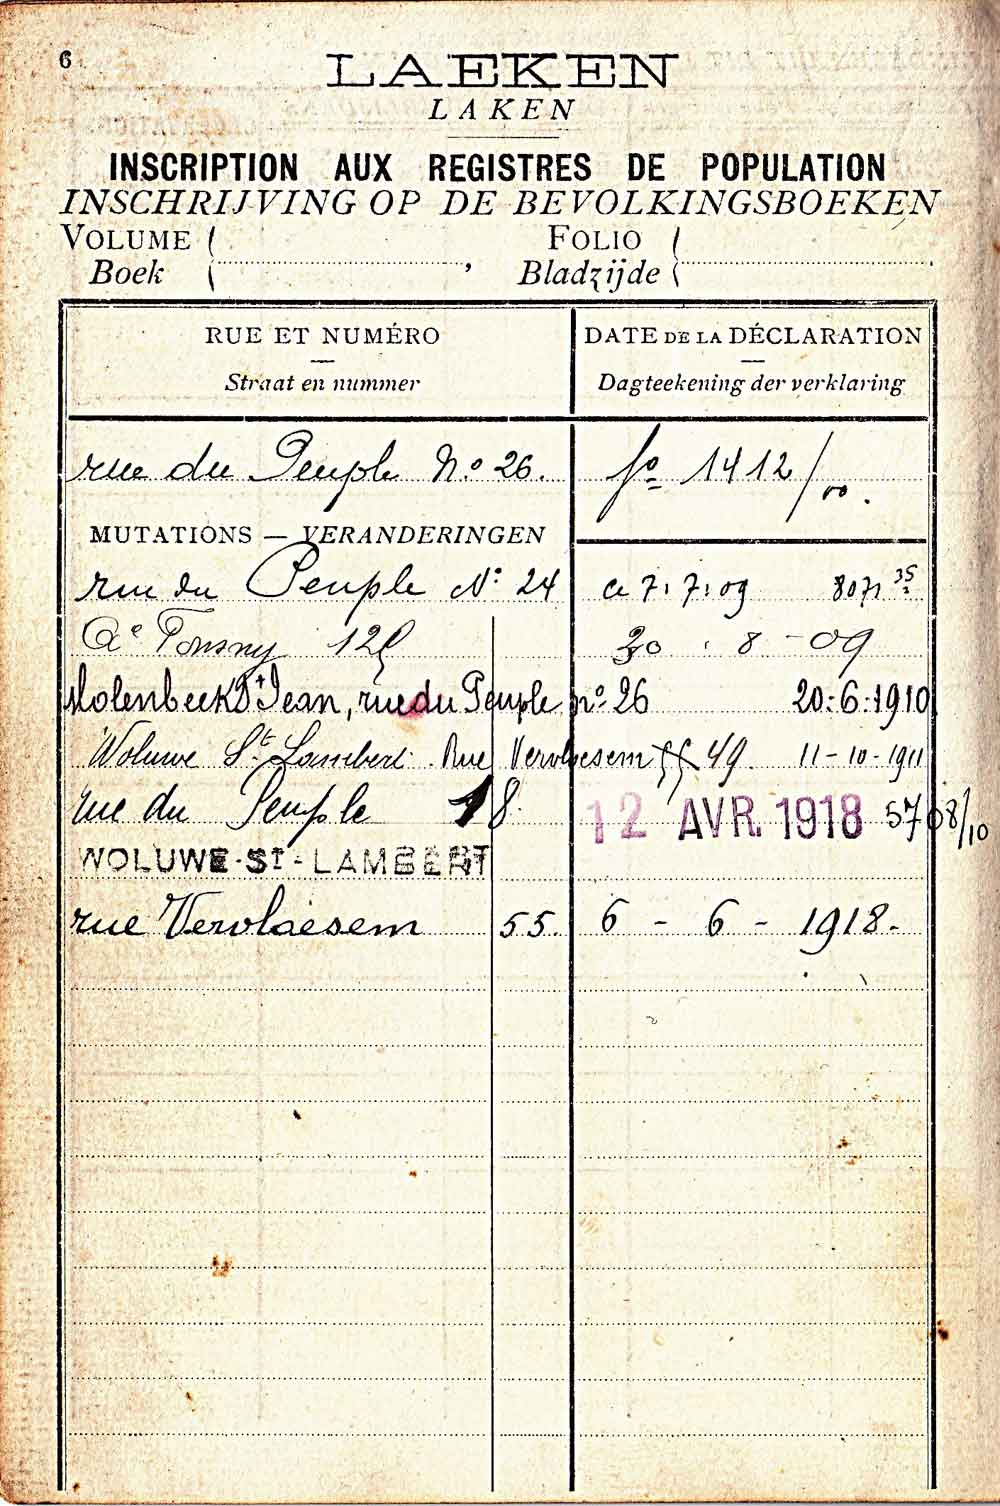 6
LAEKEN
LAKEN
INSCRIPTION AUX REGISTRES DE POPULATION
INSCHRIJVING OP DE BEVOLKINGSBOEKEN
VOLUME ( FOLIO (
Boek , Bladzijde .
RUE ET NUMÉRO DATE DE LA DÉCLARATION
Straat en nummer Dagteekening der verklaring
rue du Peuple No 26. fo 1412/00.
MUTATIONS — VERANDERINGEN
rue du Peuple No 24 ce 7.7.09 8071 35
30 . 8 - 09
Molenbeek St Jean, rue du Peuple no 26 20.6.1910
Woluwe St Lambert. Rue Vervloesem 49. 11-10-1911
rue du Peuple 18. 12 AVR. 1918 5708/10
WOLUWE-ST-LAMBERT
rue Vervloesem 55. 6 - 6 - 1918.